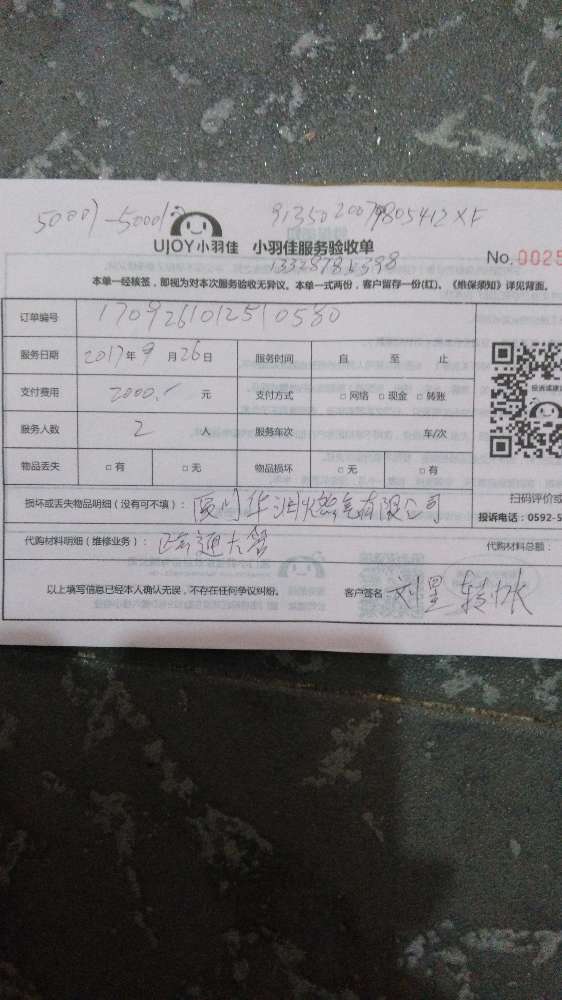 5000 -5000
UJOY小羽佳 小羽佳服务验收单
No.0025
13328785398
本单一经核签，即视为对本次服务验收无异议。本单一式两份，客户留存一份(红)、《维保须知》详见背面。
订单编号 1709261012510580
服务日期 2017年9月26日 服务时间 自 至 止
支付费用 2000. 元 支付方式 □网络 □现金 □转账
服务人数 2 人 服务车次 车/次
物品丢失 □有 □无 物品损坏 □无 □有
扫码评价或
损坏或丢失物品明细（没有可不填）： 厦门华润燃气有限公司
投诉电话：0592-5
代购材料明细（维修业务）： 代购材料总额：
以上填写信息已经本人确认无误，不存在任何争议纠纷。 客户签名 刘星